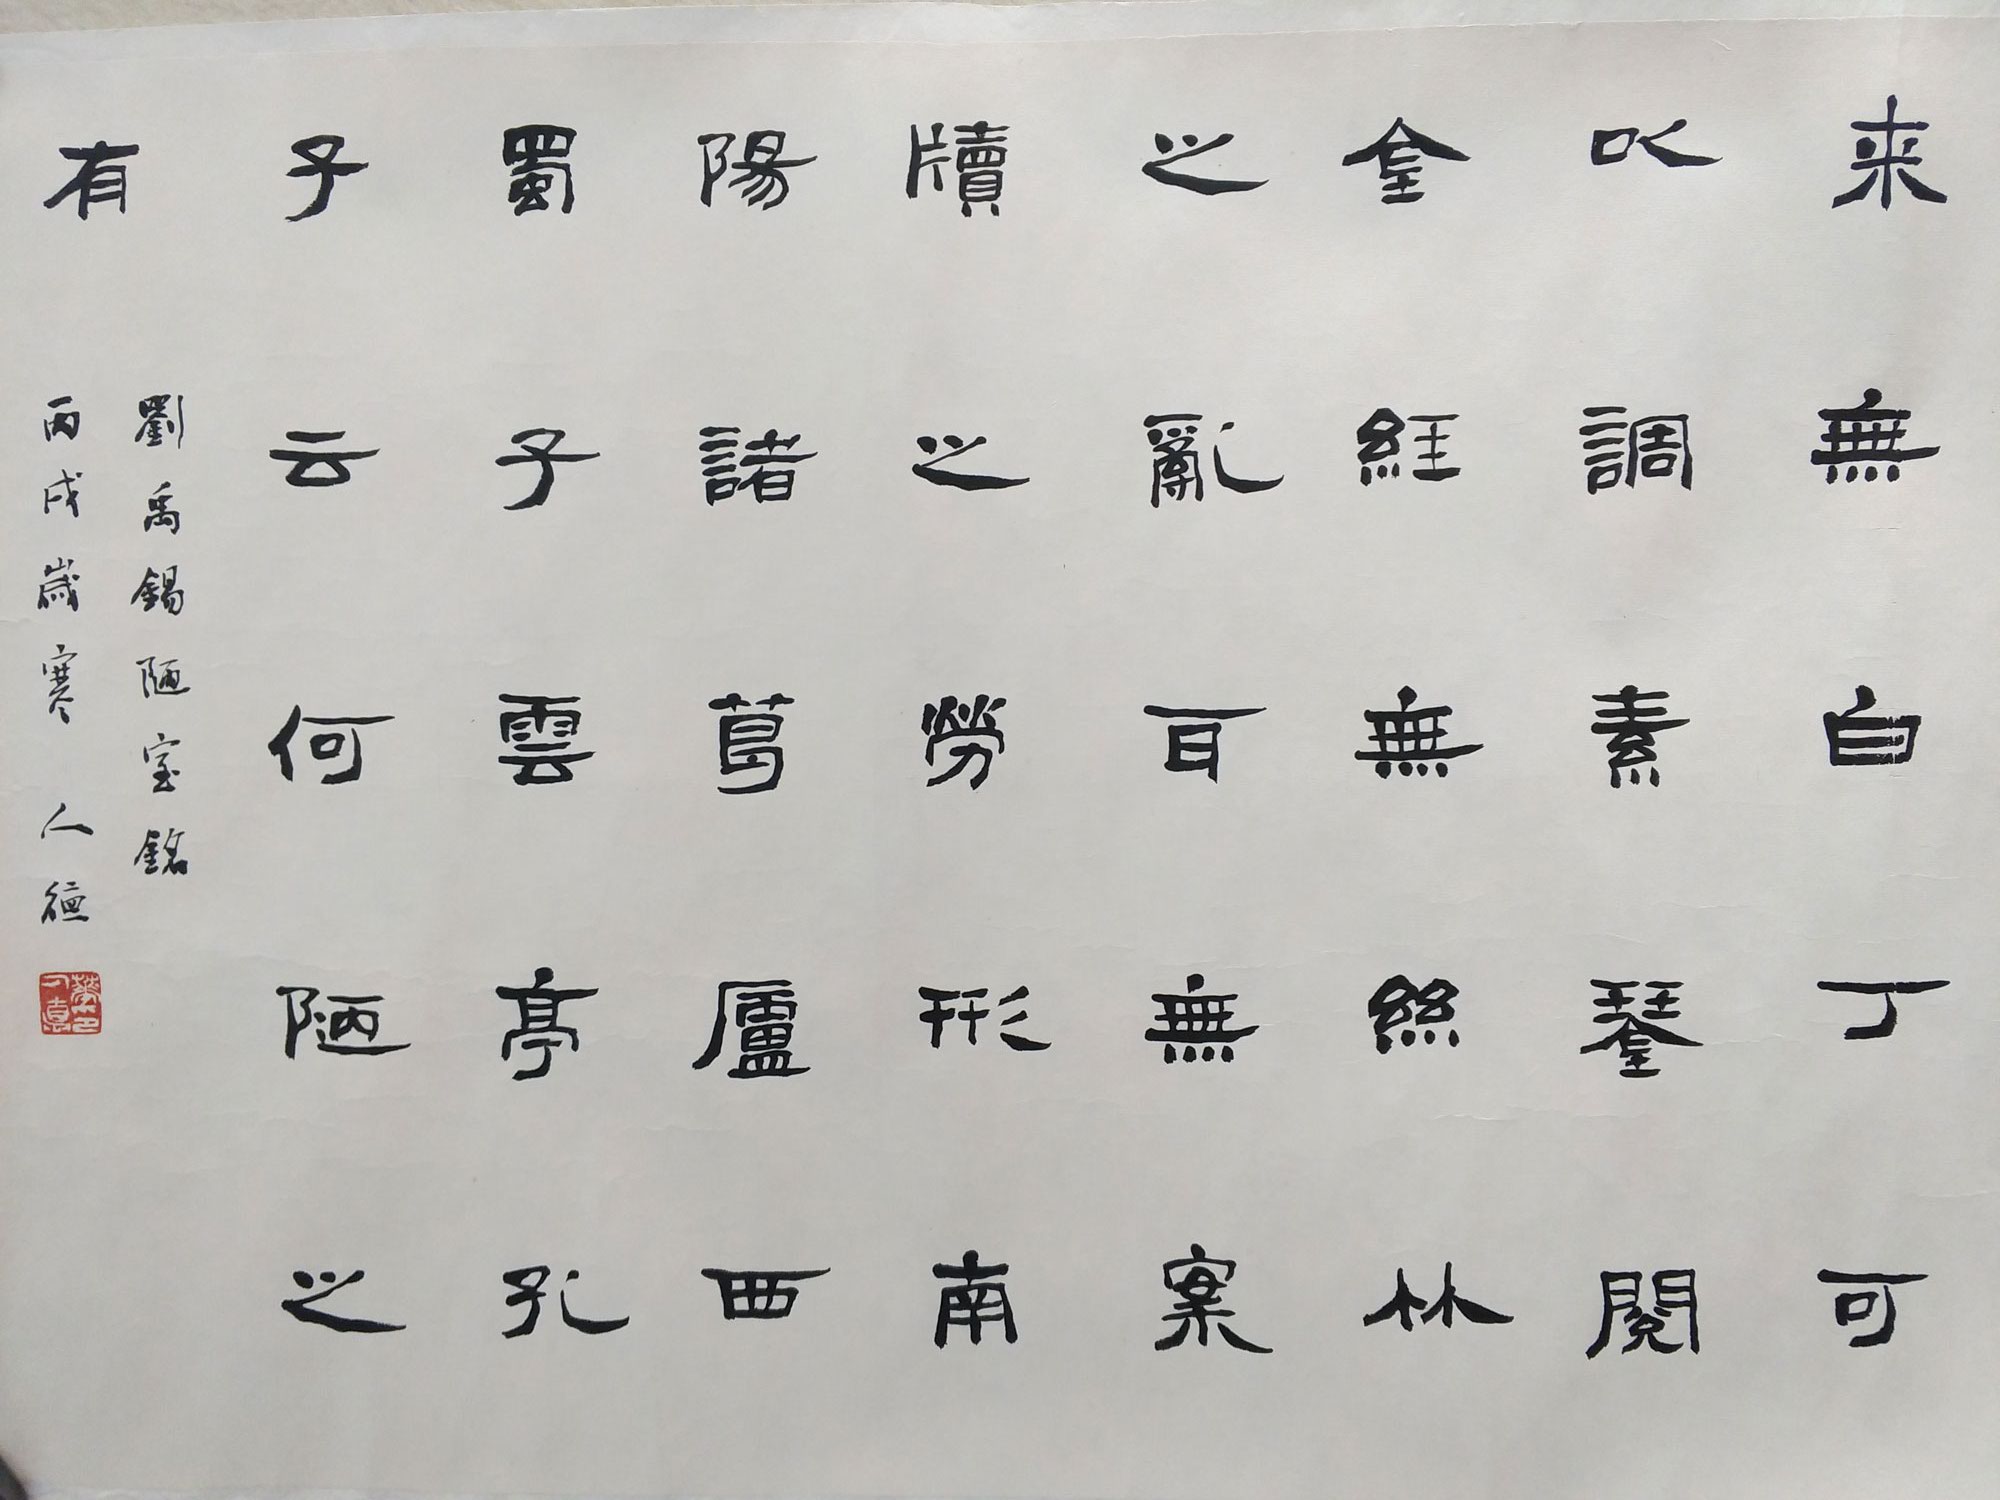 来無白丁可
以調素琴閱
金經無絲竹
之亂耳無案
牘之勞形南
陽諸葛廬西
蜀子雲亭孔
子云何陋之
有
劉禹錫陋室銘
丙戌歲寒 人德
華印人悳